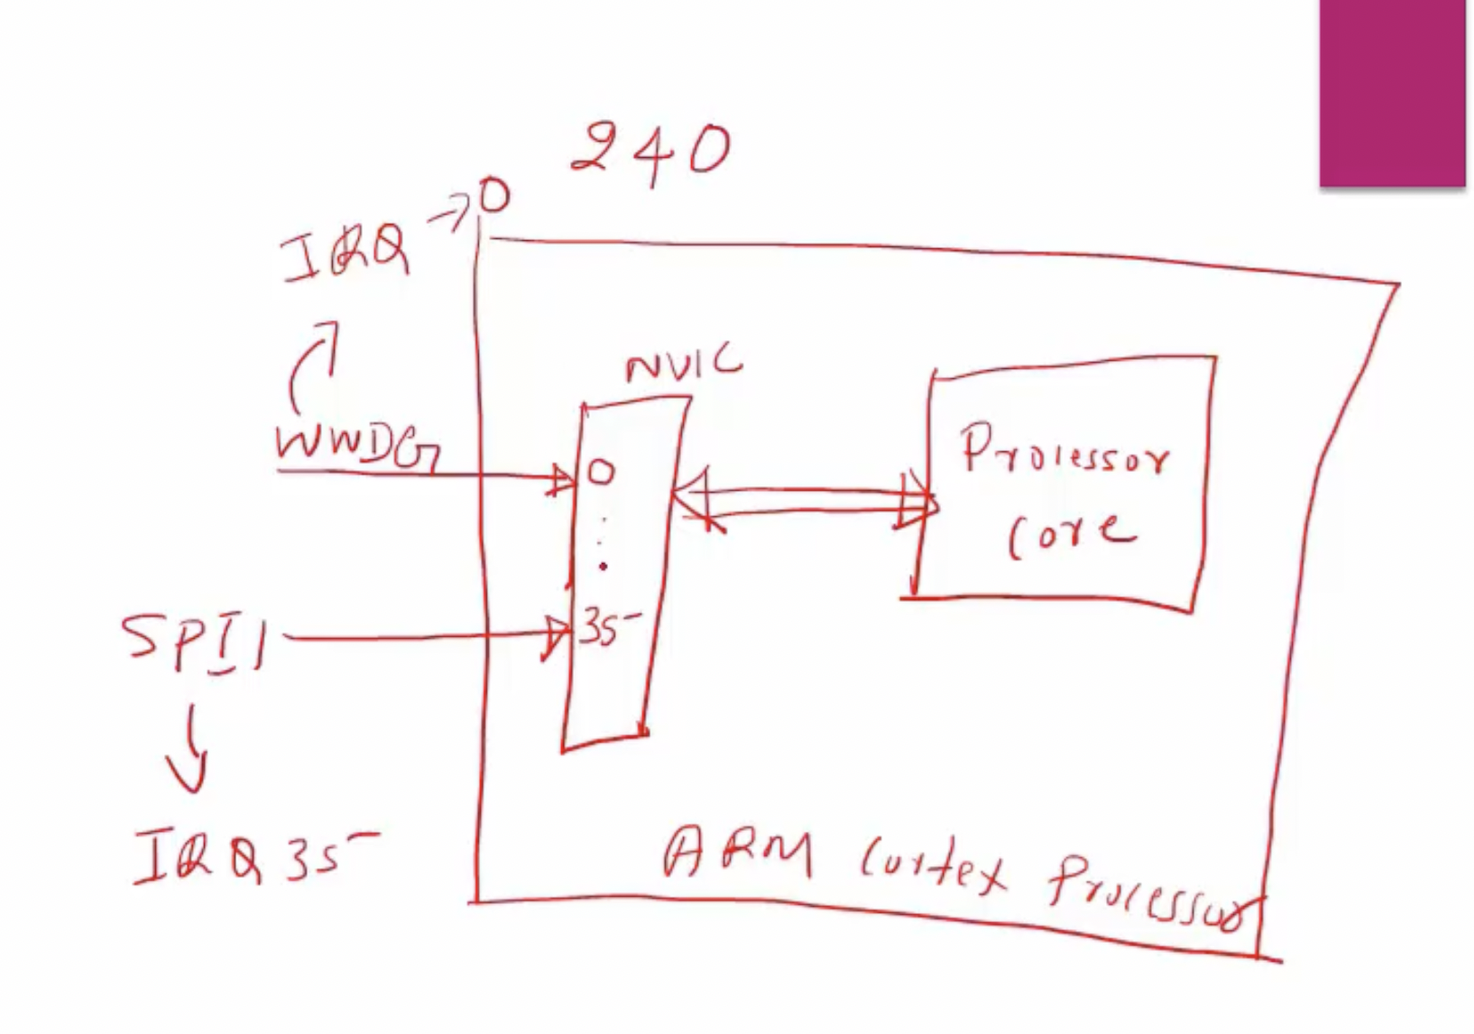 240
IRQ → 0
NVIC
WWDG
0
Processor
Core
SPI1
35
IRQ 35
ARM Cortex Processor